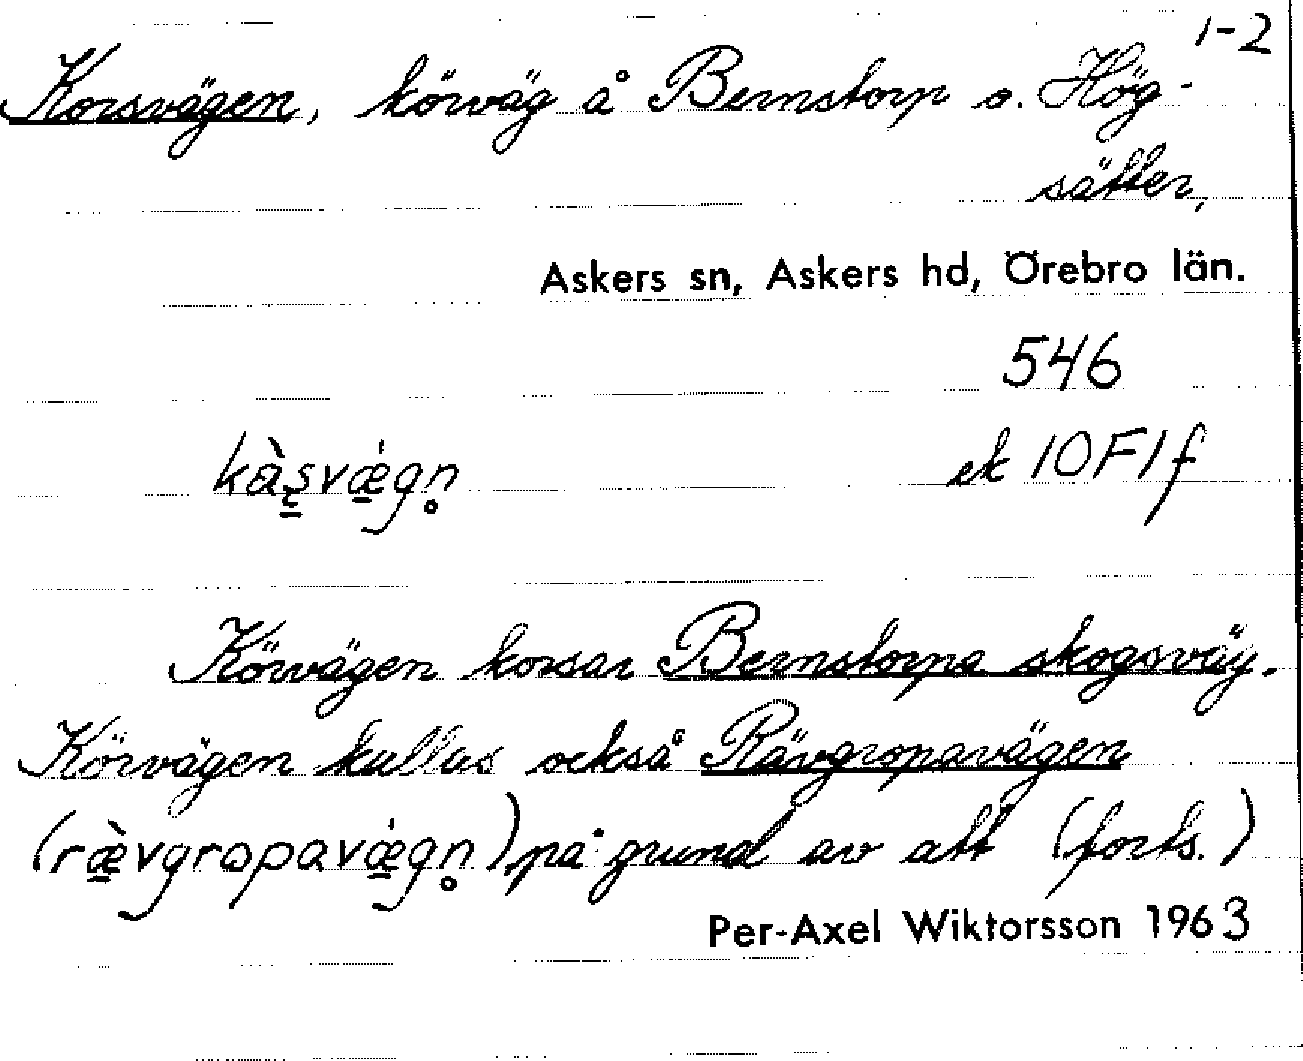 1-2
Korsvägen, körväg å Bernstorp o. Hög-
sätter,
Askers sn, Askers hd, Örebro län.
546
kàs̨væ̀gn̥ ek 10F1f
Körvägen korsar Bernstorpa skogsväg.
Körvägen kallas också Rävgropavägen
(ræ̀vgropavæ̀gn̥) på grund av att (forts.)
Per-Axel Wiktorsson 1963